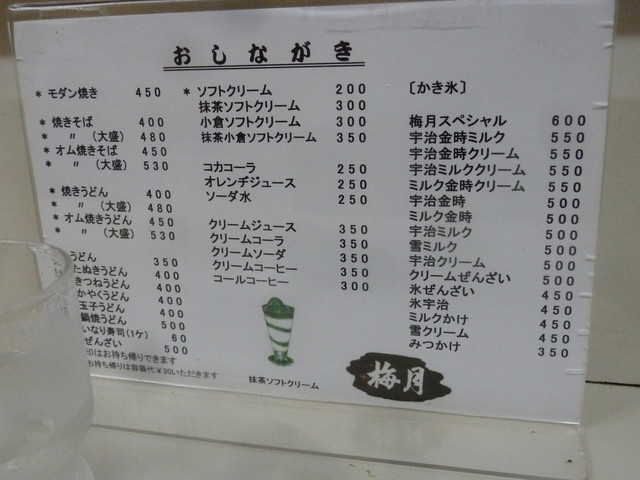 おしながき
* モダン焼き 450
* 焼きそば 400
* 〃 (大盛) 480
* オム焼きそば 450
* 〃 (大盛) 530
* 焼きうどん 400
* 〃 (大盛) 480
* オム焼うどん 450
* 〃 (大盛) 530
うどん 350
たぬきうどん 400
きつねうどん 400
かやくうどん 400
玉子うどん 400
鍋焼うどん 500
いなり寿司(1ケ) 60
ぜんざい 500
印はお持ち帰りできます
お持ち帰りは容器代¥20いただきます
* ソフトクリーム 200
抹茶ソフトクリーム 300
小倉ソフトクリーム 300
抹茶小倉ソフトクリーム 350
コカコーラ 250
オレンヂジュース 250
ソーダ水 250
クリームジュース 350
クリームコーラ 350
クリームソーダ 350
クリームコーヒー 350
コールコーヒー 300
抹茶ソフトクリーム
〔かき氷〕
梅月スペシャル 600
宇治金時ミルク 550
宇治金時クリーム 550
宇治ミルククリーム 550
ミルク金時クリーム 550
宇治金時 500
ミルク金時 500
宇治ミルク 500
雪ミルク 500
宇治クリーム 500
クリームぜんざい 500
氷ぜんざい 450
氷宇治 450
ミルクかけ 450
雪クリーム 450
みつかけ 350
梅月